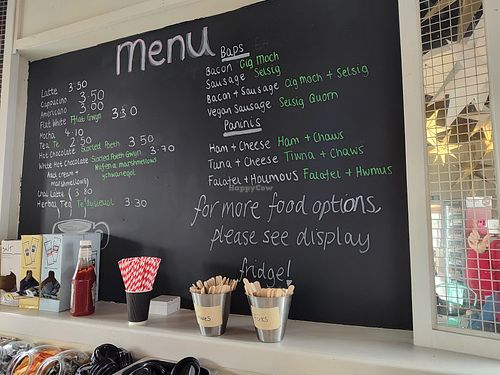 menu
Latte 3.50
Cappucino 3.50
Americano 3.00
Flat White Fflat Gwyn 3.30
Mocha 4.10
Tea Te 2.50
Hot Chocolate Siocled Poeth 3.50
White Hot Chocolate Siocled Poeth Gwyn 3.70
Add cream + marshmallows)
Hufena marshmellows ychwanegol
Chai Latte 3.80
Herbal Tea Te llysieuol 3.30
Baps
Bacon Cig Moch
Sausage Selsig
Bacon + Sausage Cig moch + Selsig
Vegan Sausage Selsig Quorn
Paninis
Ham + Cheese Ham + Chaws
Tuna + Cheese Tiwna + Chaws
Falafel + Houmous Falafel + Hwmws
for more food options,
please see display
fridge!
HappyCow
Forks